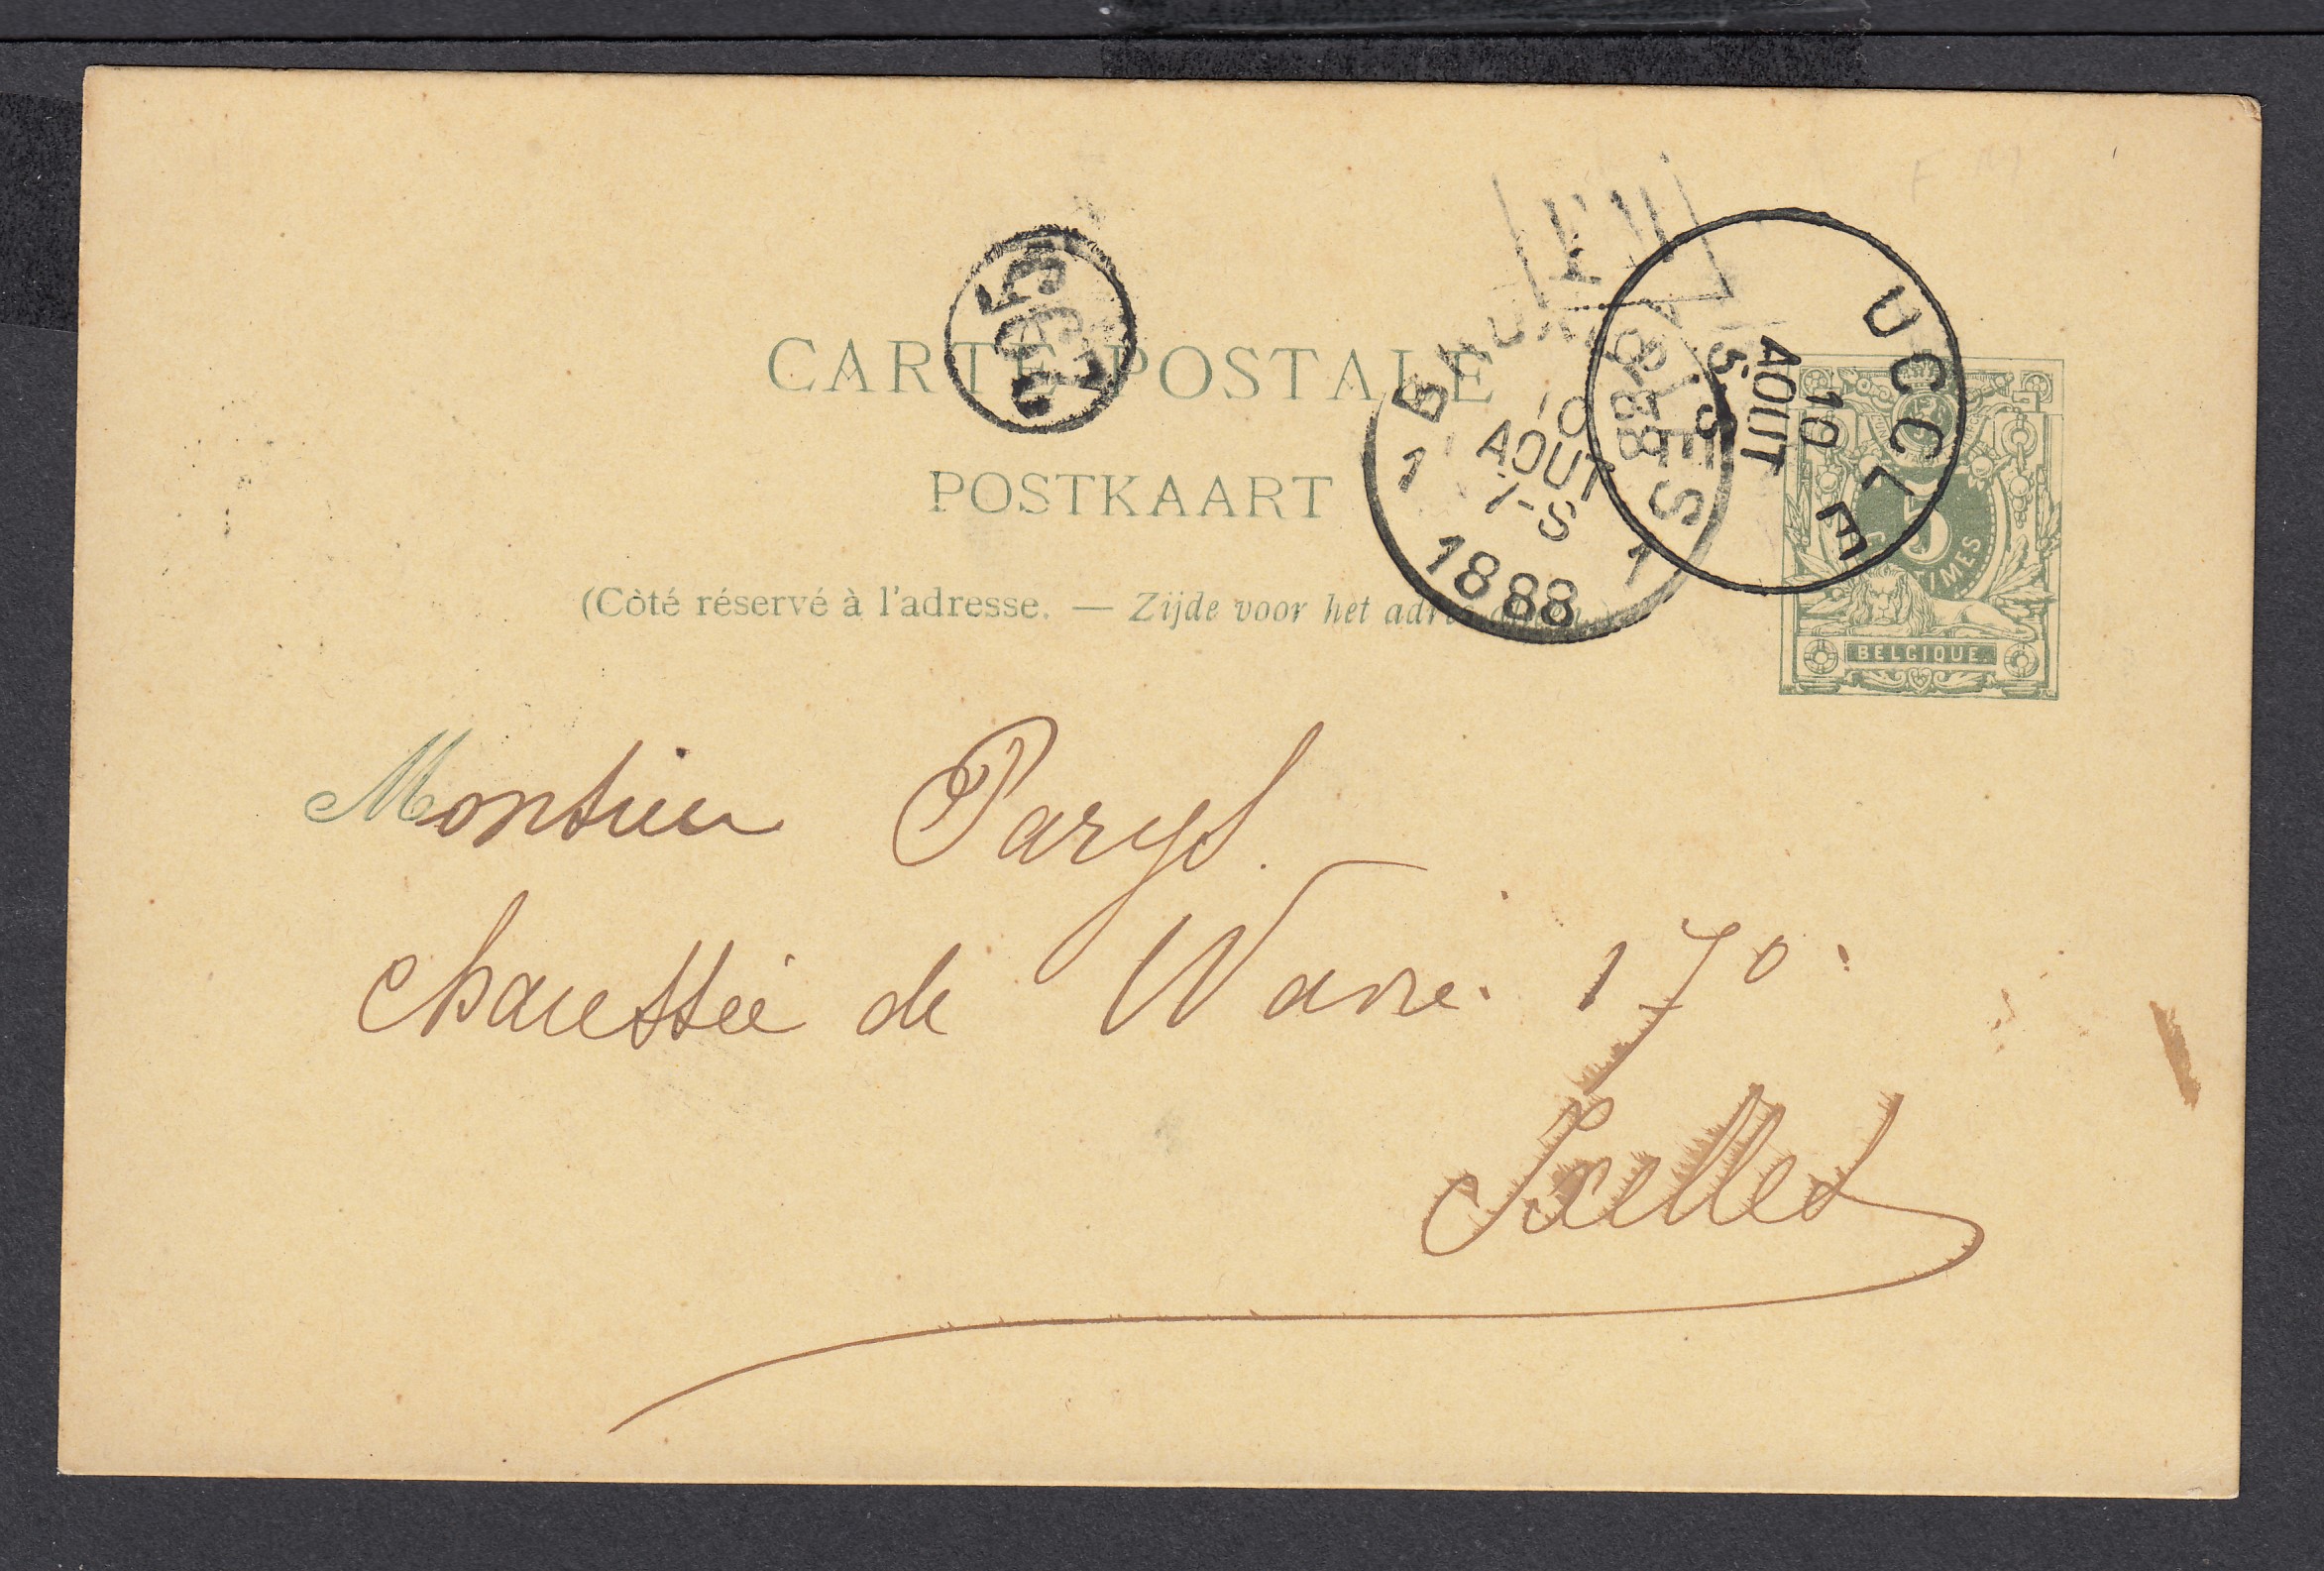 CARTE POSTALE
POSTKAART
(Côté réservé à l'adresse. — Zijde voor het
BRUXELLES
1 1
10
AOUT
7-S
1888
UCCLE
10
AOUT
5-S
1888
5
BELGIQUE
Monsieur Parys.
chaussée de Wavre. 170.
Ixelles